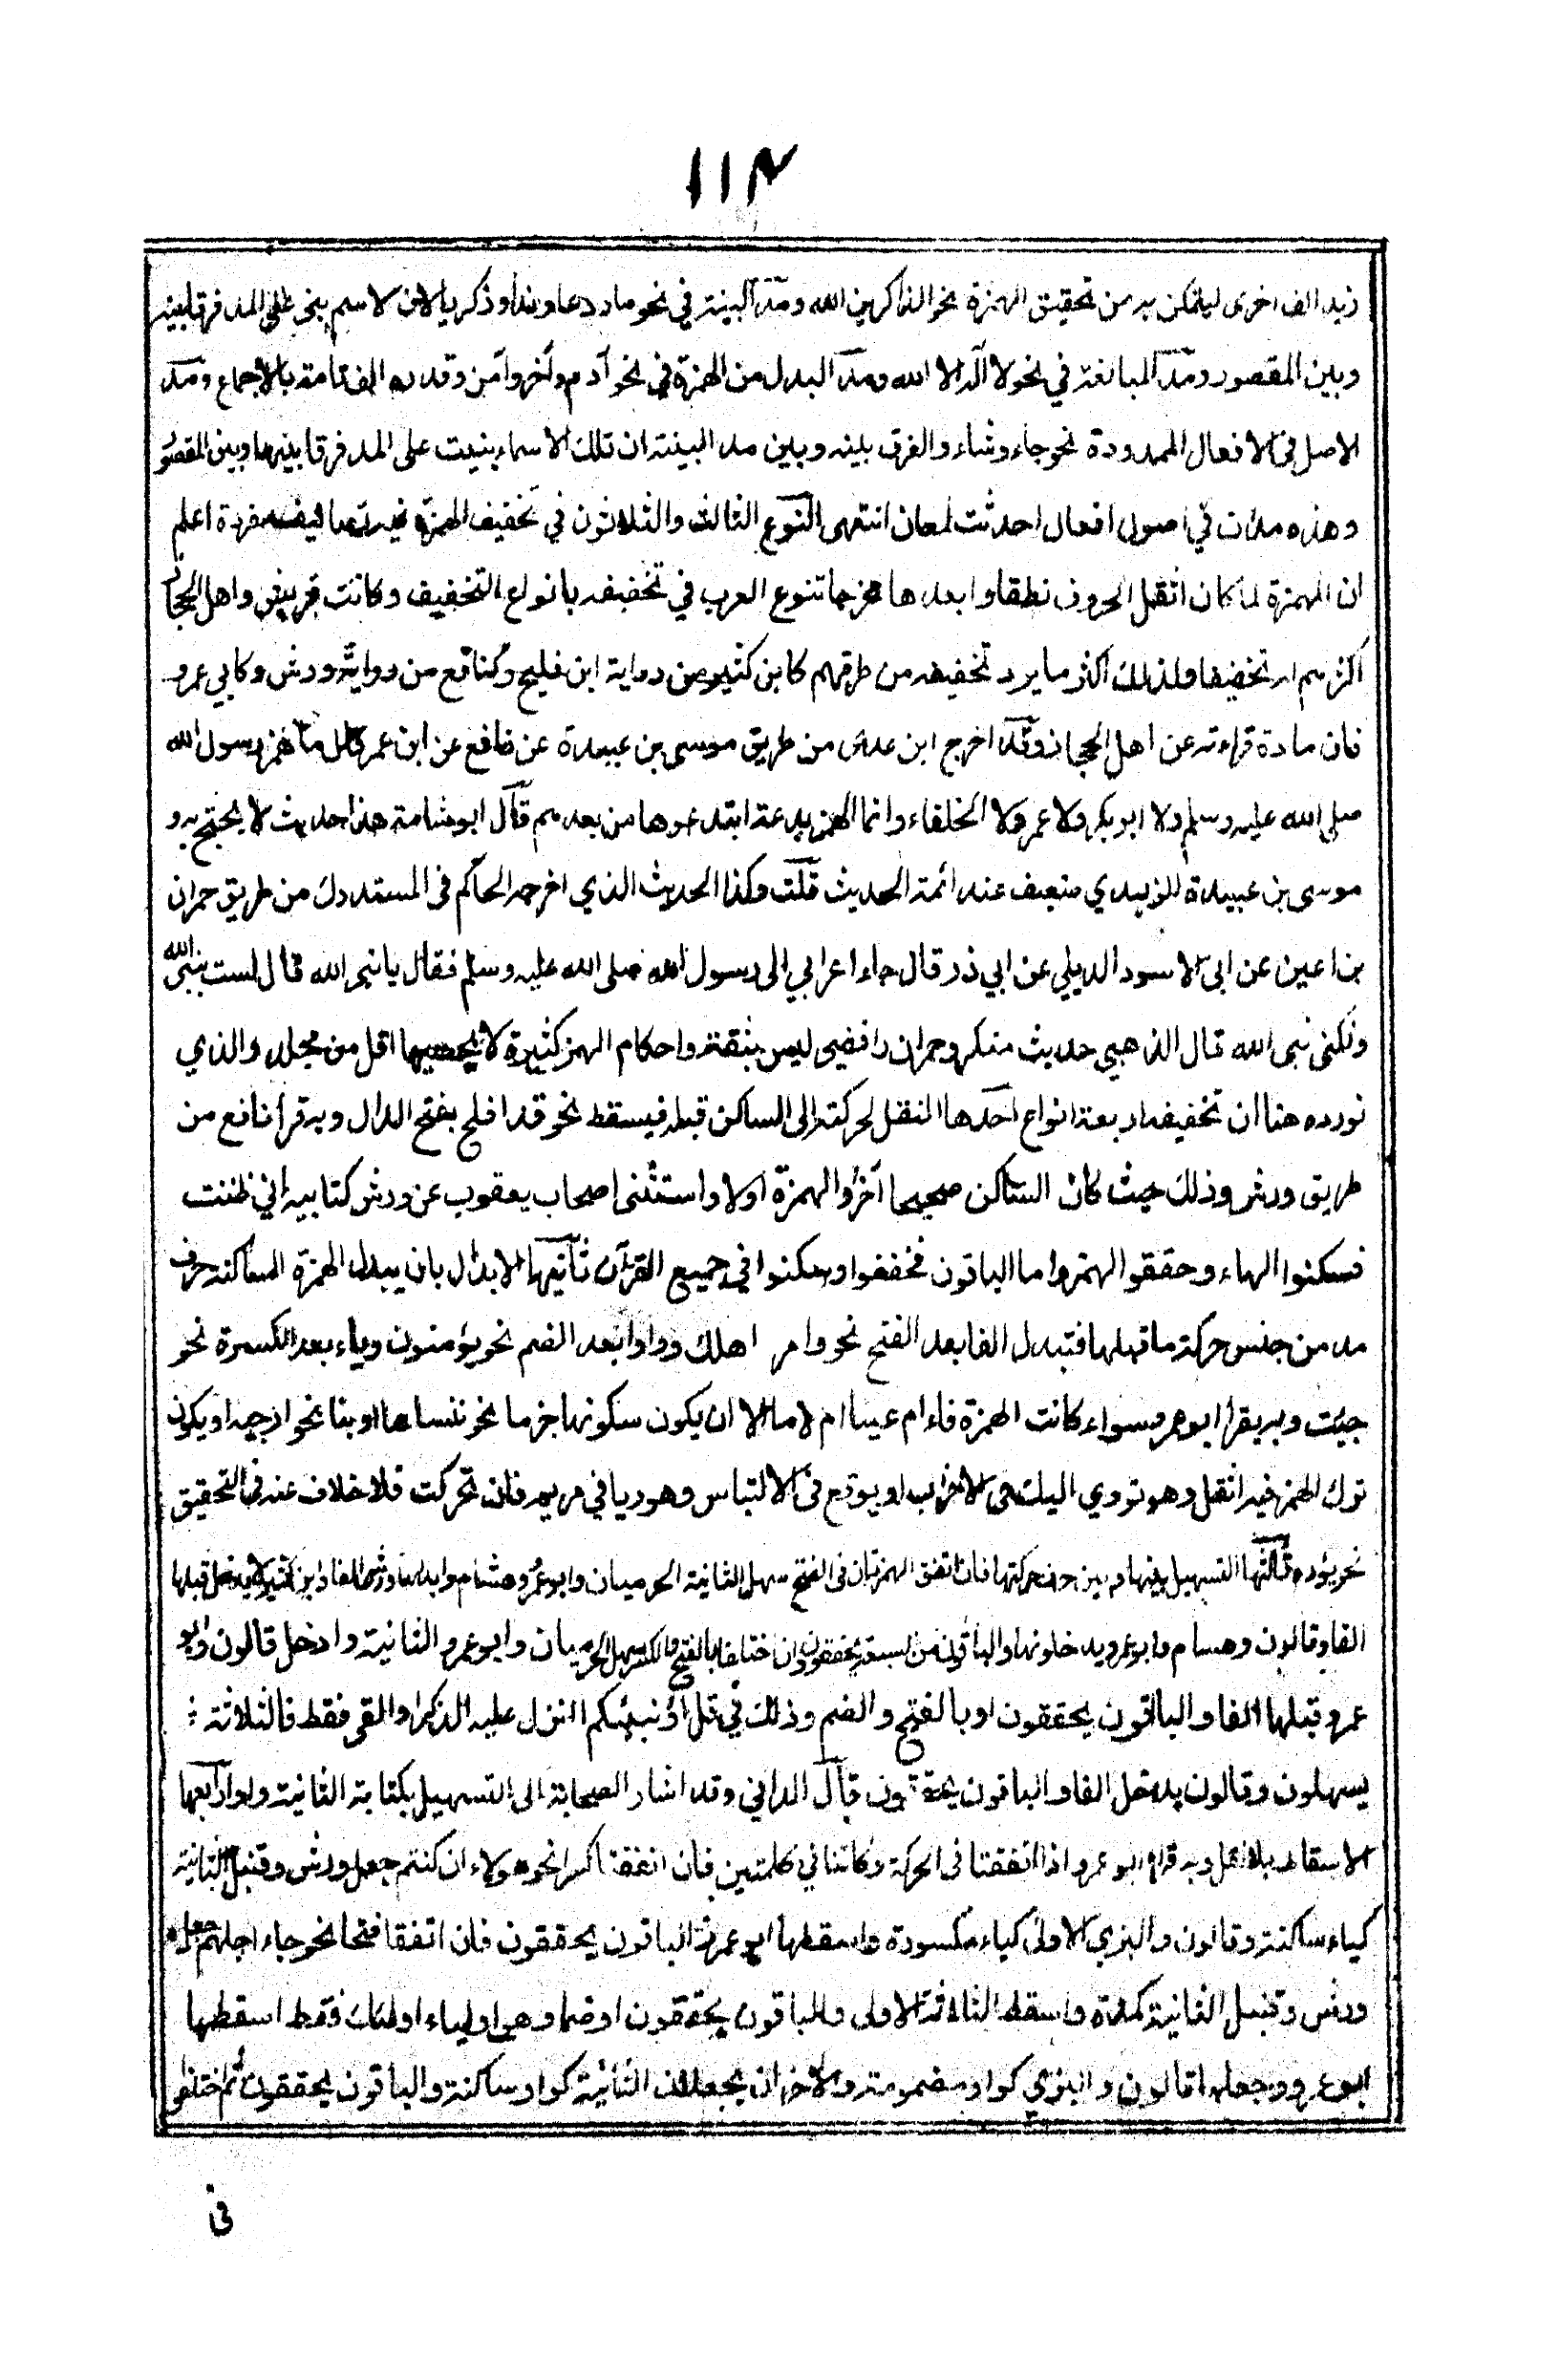 ١١٣
زيد الف اخرى ليتمكن به من تحقيق الهمزة نحو الذاكرين الله ومد البينة في نحو ماء ودعاء ونداء وذكرياء لان الاسم بنى على المد فرقا بينه
وبين المقصور ومد المبالغة في نحو لا اله الا الله ومد البدل من الهمزة في نحو آدم وآخر وآمن وقدره الف تامة بالاجماع ومد
الاصل في الافعال الممدودة نحو جاء وشاء والفرق بينه وبين مد البينة ان تلك الاسماء بنيت على المد فرقا بينها وبين المقصور
وهذه مدات في اصول افعال احدثت لمعان انتهى النوع الثالث والثلاثون في تخفيف الهمزة فيه تصانيف مفردة اعلم
ان الهمزة لما كان اثقل الحروف نطقا وابعدها مخرجا تنوع العرب في تخفيفه بانواع التخفيف وكانت قريش واهل الحجاز
اكثرهم له تخفيفا ولذلك اكثر ما يرد تخفيفه من طرقهم كابن كثير من رواية ابن فليح وكنافع من رواية ورش وكابي عمرو
فان مادة قراءته عن اهل الحجاز وقد اخرج ابن عدى من طريق موسى بن عبيدة عن نافع عن ابن عمر قال ما همز رسول الله
صلى الله عليه وسلم ولا ابو بكر ولا عمر ولا الخلفاء وانما الهمز بدعة ابتدعوها من بعدهم قال ابو شامة هذا حديث لا يحتج به و
موسى بن عبيدة الزبيدي ضعيف عند ائمة الحديث قلت وكذا الحديث الذي اخرجه الحاكم فى المستدرك من طريق حمران
بن اعين عن ابى الاسود الديلي عن ابي ذر قال جاء اعرابي الى رسول الله صلى الله عليه وسلم فقال يا نبيء الله قال لست بنبىء الله
ولكنى نبى الله قال الذهبي حديث منكر وحمران رافضى ليس بثقة واحكام الهمز كثيرة لا يحصيها اقل من مجلد والذي
نورده هنا ان تخفيفه اربعة انواع احدها النقل لحركته الى الساكن قبله فيسقط نحو قد افلح بفتح الدال وبه قرأ نافع من
طريق ورش وذلك حيث كان الساكن صحيحا آخرا والهمزة اولا واستثنى اصحاب يعقوب عن ورش كتابيه اني ظننت
فسكنوا الهاء وحققو الهمز واما الباقون فخففوا وسكنوا في جميع القرآن ثانيها الابدال بان يبدل الهمزة الساكنة حرف
مد من جنس حركة ما قبلها فتبدل الفا بعد الفتح نحو وامر اهلك وواوا بعد الضم نحو يؤمنون وياء بعد الكسرة نحو
جيت وبه يقرأ ابو عمرو سواء كانت الهمزة فاء ام عينا ام لاما الا ان يكون سكونها جزما نحو ننساها او بنا نحو ارجيه او يكون
ترك الهمز فيه اثقل وهو تووي اليك فى الاحزاب او يوقع فى الالتباس وهو ريا في مريم فان تحركت فلا خلاف عنه فى التحقيق
نحو يؤده ثالثها التسهيل بينها وبين حرف حركتها فان اتفق الهمزتان فى الفتح سهل الثانية الحرميان وابو عمرو وهشام وابدلها ورش الفا وابن كثير لا يدخل قبلها
الفا وقالون وهسام وابو عمرو يدخلونها والباقون من السبعة يحققون وان اختلفا بالفتح والكسر سهل الحرميان وابو عمرو الثانية وادخل قالون وابو
عمرو قبلها الفا والباقون يحققون او بالفتح والضم وذلك في قل اؤنبئكم اانزل عليه الذكر او القى فقط فالثلاثة :
يسهلون وقالون يدخل الفا والباقون يحققون قال الداني وقد اشار الصحابة الى التسهيل بكتابة الثانية واوا رابعها
الاسقاط بلا نقل وبه قرأ ابو عمرو اذا اتفقتا فى الحركة وكانتا في كلمتين فان اتفقتا كسرا نحو هولاء ان كنتم جعل ورش وقنبل الثانية
كياء ساكنة وقالون والبزي الاولى كياء مكسورة واسقطها ابو عمرو والباقون يحققون فان اتفقا فتحا نحو جاء اجلهم جعل
ورش وقنبل الثانية كمدة واسقط الثلاثة الاولى والباقون يحققون او ضما وهو اولياء اولئك فقط اسقطها
ابو عمرو وجعلها قالون والبزي كواو مضمومة والاخران يجعلان الثانية كواو ساكنة والباقون يحققون ثم اختلفوا
فى